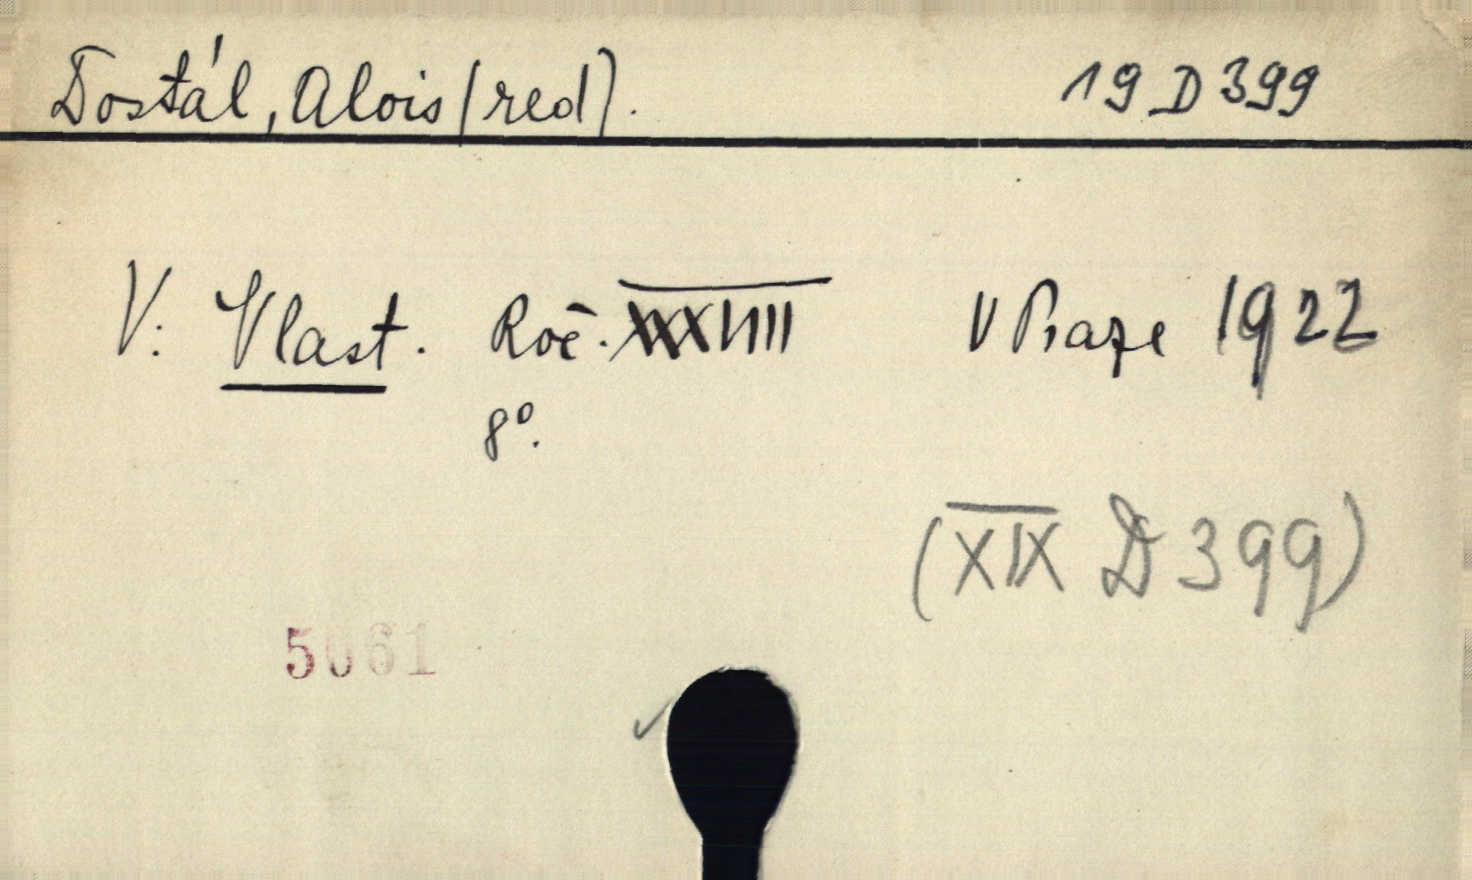 Dostál, Alois (red). 19 D 399
V: Vlast. Roč. XXXVIII V Praze 1922
8°.
(XIX D 399)
5061